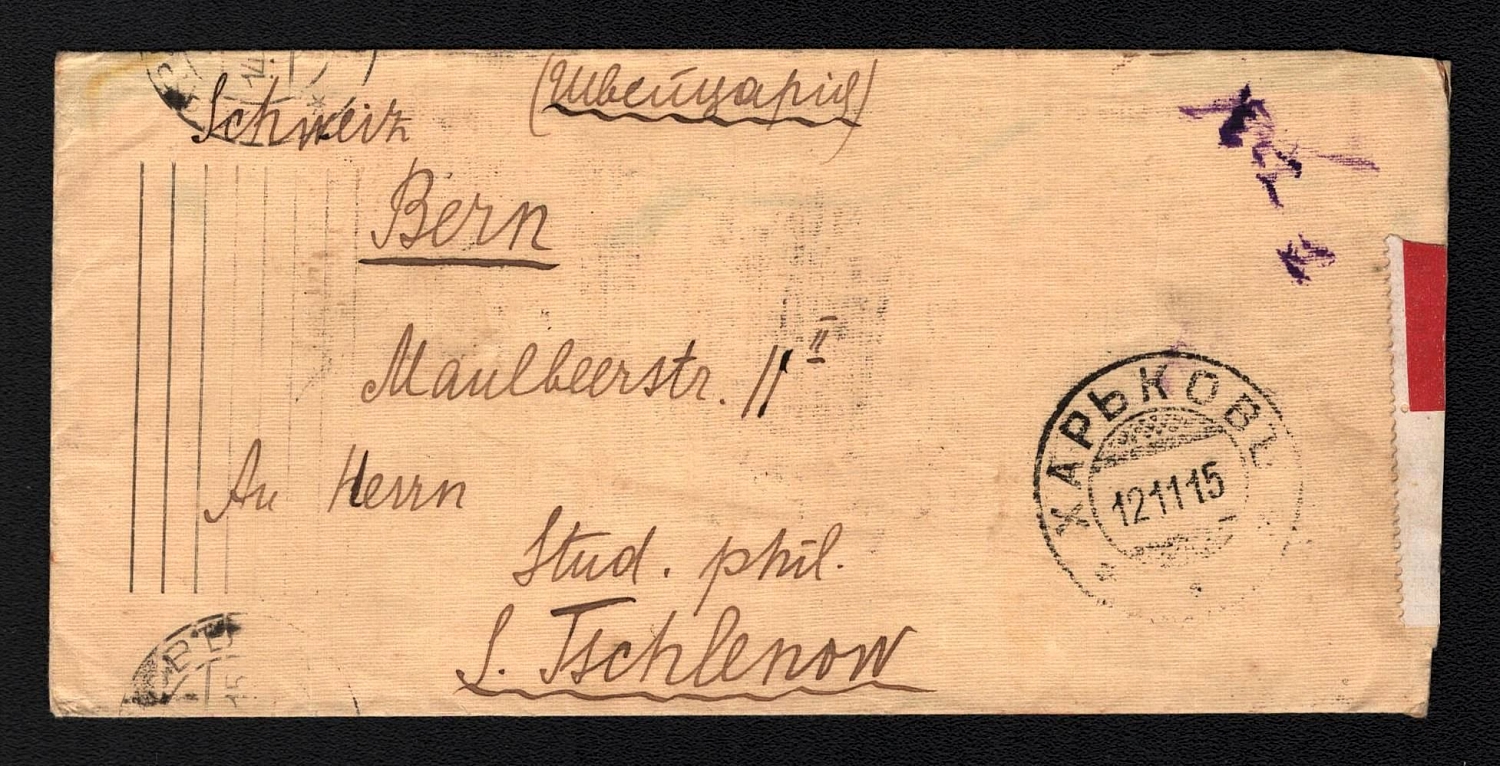 Schweiz (Швейцарія)
Bern
Maulbeerstr. 11 II
An Herrn
Stud. phil.
S. Tschlenow
ХАРЬКОВЪ
121115